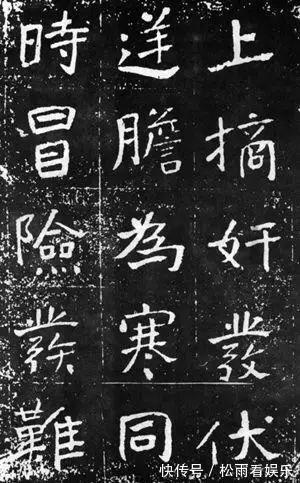 上摘奸發伏
逆膽為寒同
時冒險發難
快传号／松雨看娱乐